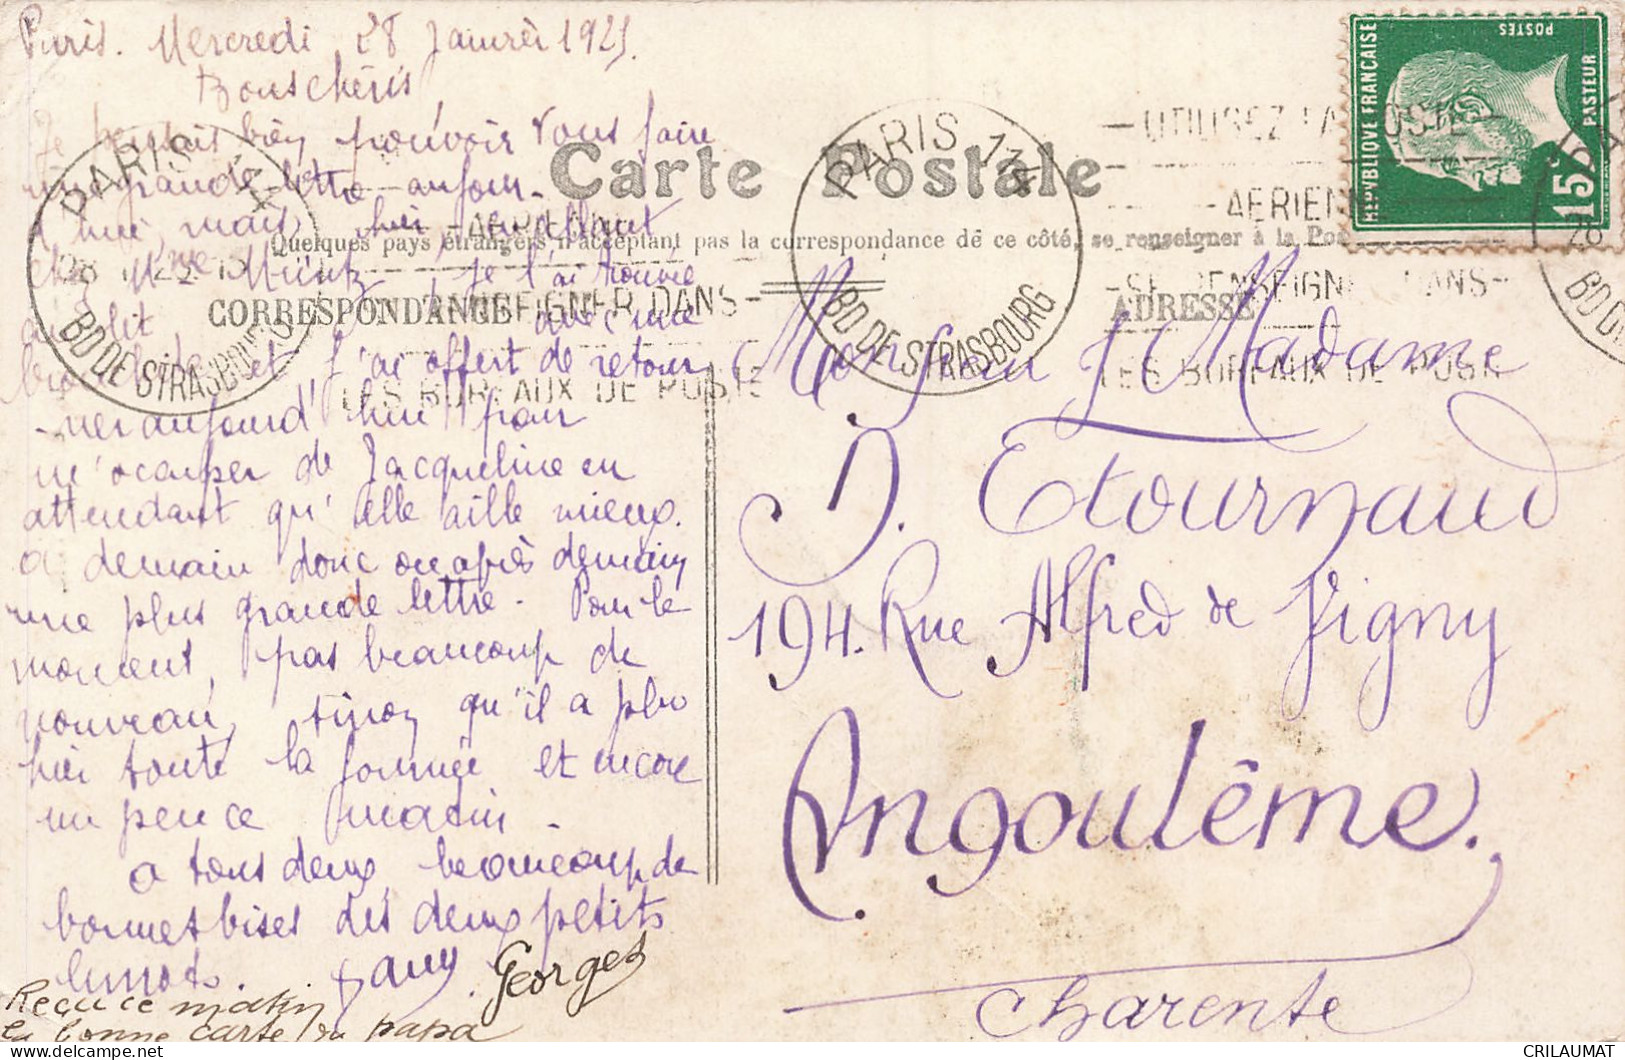 Paris. Mercredi 28 Janvier 1925.
Bons chéris
Je pensais bien pouvoir vous faire
une grande lettre aujour-
d'hui, mais hier, en allant
chez Mme Müntz, je l'ai trouvée
au lit, avec une
et j'ai offert de retour
-ner aujourd'hui pour
m'occuper de Jacqueline en
attendant qu'elle aille mieux.
à demain donc ou après demain
une plus grande lettre. Pour le
moment, pas beaucoup de
nouveau, sinon qu'il a plu
hier toute la journée et encore
un peu ce matin.
à tous deux beaucoup de
bonnes bises des deux petits
Georges
Reçu ce matin
la bonne carte du papa
Carte Postale
Quelques pays étrangers n'acceptant pas la correspondance de ce côté, se renseigner à la Pos
CORRESPONDANCE
ADRESSE
Monsieur Madame
D. Etournaud
194. Rue Alfred de Vigny
Angoulême.
Charente
PARIS 13
BD DE STRASBOURG
AERIENNE
SE RENSEIGNER DANS
LES BUREAUX DE POSTE
PARIS 13
BD DE STRASBOURG
UTILISEZ LA POSTE
AERIENNE
SE RENSEIGNER DANS
LES BUREAUX DE POSTE
28
BD D
REPUBLIQUE FRANÇAISE
POSTES
PASTEUR
15c
CRILAUMAT